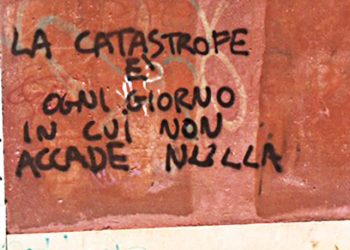 LA CATASTROFE
E'
OGNI GIORNO
IN CUI NON
ACCADE NULLA